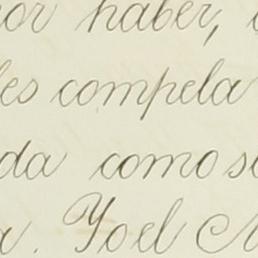 por haber,
les compela
da como si
a. Y el